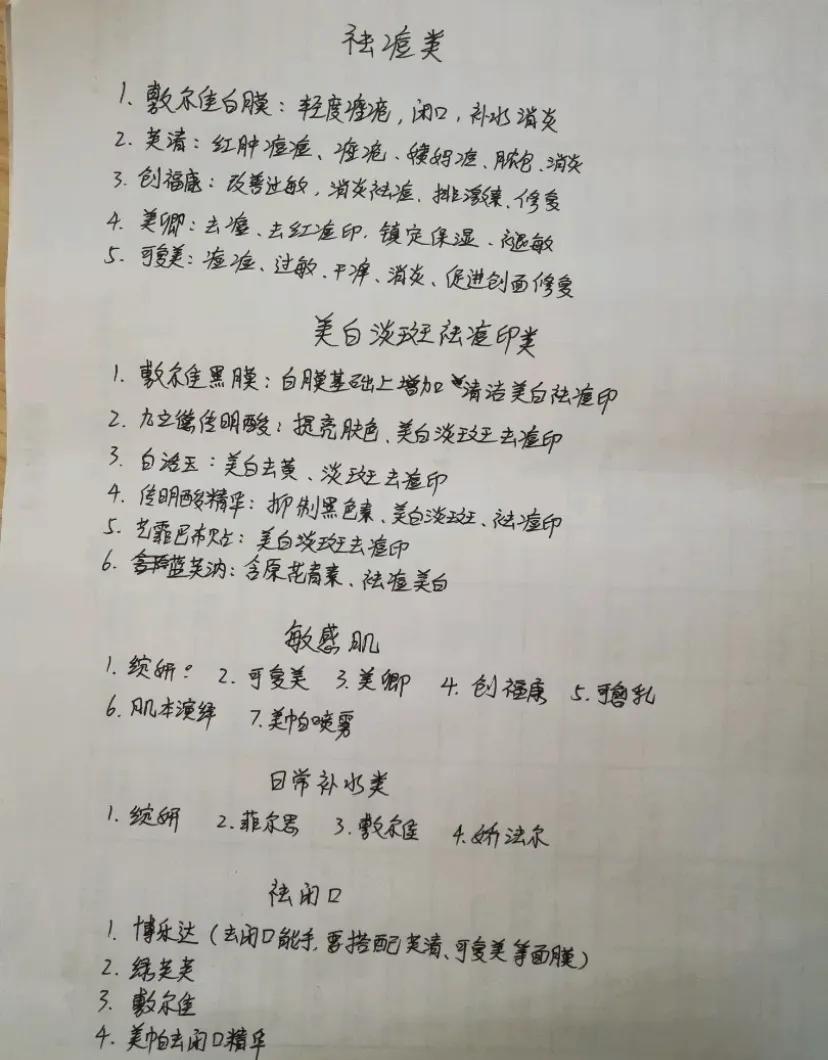 祛痘类
1. 敷尔佳白膜：轻度痤疮，闭口，补水消炎
2. 芙清：红肿痘痘、痤疮、姨妈痘、脓包、消炎
3. 创福康：改善过敏，消炎祛痘、排激素、修复
4. 美卿：去痘、去红痘印、镇定保湿、褪敏
5. 可复美：痘痘、过敏、干净、消炎、促进创面修复
美白淡斑祛痘印类
1. 敷尔佳黑膜：白膜基础上增加清洁美白祛痘印
2. 九立德传明酸：提亮肤色、美白淡斑去痘印
3. 白活玉：美白去黄、淡斑去痘印
4. 传明酸精华：抑制黑色素、美白淡斑、祛痘印
5. 芝霏巴布贴：美白淡斑去痘印
6. 蓝芙汭：含原花青素、祛痘美白
敏感肌
1. 绽妍： 2. 可复美 3. 美卿 4. 创福康 5. 可鲁乳
6. 肌本演绎 7. 美帕喷雾
日常补水类
1. 绽妍 2. 菲尔思 3. 敷尔佳 4. 娇法尔
祛闭口
1. 博乐达（去闭口能手，要搭配芙清、可复美等面膜）
2. 绿芙芙
3. 敷尔佳
4. 美帕去闭口精华